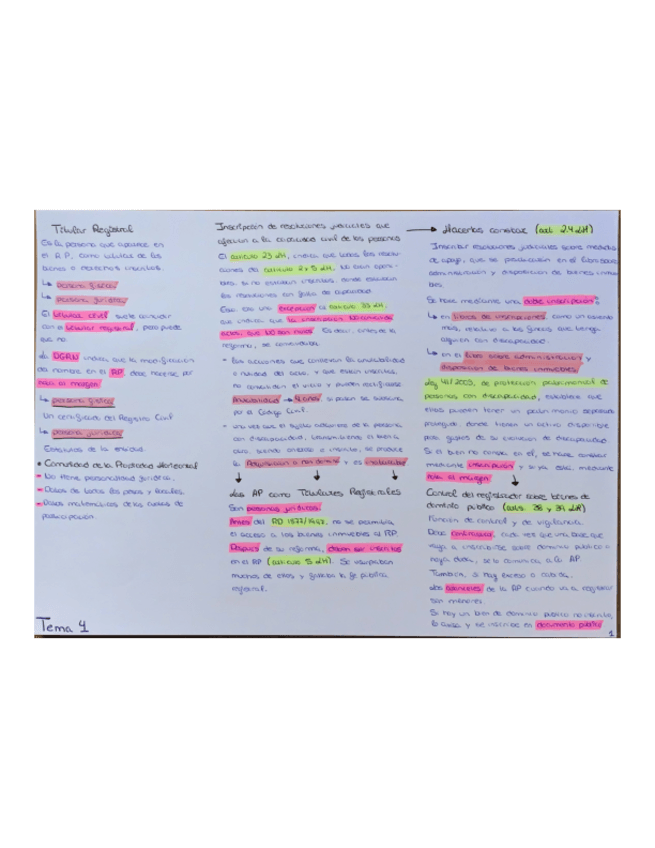 Titular Registral
Es la persona que aparece en
el R.P. como titular de los
bienes o derechos inscritos.
↳ persona física
↳ persona jurídica
El titular civil suele coincidir
con el titular registral, pero puede
que no.
La DGRN indica que la modificación
del nombre en el RP, debe hacerse por
nota al margen
↳ persona física
Un certificado del Registro Civil
↳ persona jurídica
Estatutos de la entidad.
• Comunidad de la Propiedad Horizontal
- No tiene personalidad jurídica.
- Datos de todos los pisos y locales.
- Datos matemáticos de las cuotas de
participación.
Tema 4
Inscripción de resoluciones judiciales que
afectan a la capacidad civil de las personas
El artículo 23 LH, indica que todas las resolu-
ciones del artículo 2 y 5 LH, no
si no estuvieran inscritos, donde
las resoluciones con falta de capacidad.
Esto era una excepción al artículo 33 LH,
que indica que la inscripción no convalida
actos, que NO son nulos. Es decir, antes de la
reforma, se convalidaba.
- Las acciones que conllevan la anulabilidad
o nulidad del acto, y que están inscritos,
no convalidan el vicio y pueden ejercitarse
Anulabilidad → 4 años si puede ser subsanada
por el Código Civil.
- una vez que el sujeto adquiere de la persona
con discapacidad, transmitiendo el bien a
otro siendo oneroso e inscrito, se produce
la Adquisición a non domino y es inatacable
Las AP como Titulares Registrales
Son personas jurídicas.
Antes del RD 1877/1998, no se permitía
el acceso a los bienes inmuebles al RP.
Después de su reforma, deben ser inscritos
en el RP (artículo 5 LH). Se usurpaban
muchos de ellos y gozaban la fe pública
registral.
→ Hacerlos constar (art. 2.4 LH)
Inscribir resoluciones judiciales sobre medidas
de apoyo, que se practicarán en el libro sobre
administración y disposición de bienes inmue-
bles.
Se hace mediante una doble inscripción:
↳ en libros de inscripciones, como un asiento
más, relativo a las fincas que tenga
alguien con discapacidad.
↳ en el libro sobre administración y
disposición de bienes inmuebles
Ley 41/2003, de protección patrimonial de
personas con discapacidad, establece que
ellos pueden tener un patrimonio separado
protegido donde tienen un activo disponible
para gastos de su situación de discapacidad
Si el bien no consta en él, se hace constar
mediante inscripción y si ya está, mediante
nota al margen
Control del registrador sobre bienes de
dominio público (arts. 38 y 39 LH)
Función de control y de vigilancia.
Debe controlarse, cada vez que una finca que
vaya a inscribirse sobre dominio público o
haya duda, se lo comunica a la AP.
También, si hay exceso de cabida.
Los aranceles de la AP cuando va a registrar
son menores.
Si hay un bien de dominio público no inscrito,
lo avisa y se inscribe en documento público
1